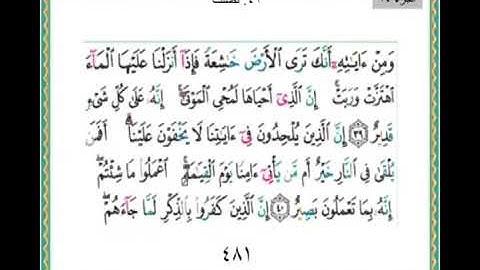 ٤١. فصلت
وَمِنْ ءَايَـٰتِهِۦٓ أَنَّكَ تَرَى ٱلْأَرْضَ خَـٰشِعَةً فَإِذَآ أَنزَلْنَا عَلَيْهَا ٱلْمَآءَ
ٱهْتَزَّتْ وَرَبَتْ ۚ إِنَّ ٱلَّذِىٓ أَحْيَاهَا لَمُحْىِ ٱلْمَوْتَىٰٓ ۚ إِنَّهُۥ عَلَىٰ كُلِّ شَىْءٍ
قَدِيرٌ ٣٩ إِنَّ ٱلَّذِينَ يُلْحِدُونَ فِىٓ ءَايَـٰتِنَا لَا يَخْفَوْنَ عَلَيْنَآ ۗ أَفَمَن
يُلْقَىٰ فِى ٱلنَّارِ خَيْرٌ أَم مَّن يَأْتِىٓ ءَامِنًا يَوْمَ ٱلْقِيَـٰمَةِ ۚ ٱعْمَلُوا۟ مَا شِئْتُمْ ۖ
إِنَّهُۥ بِمَا تَعْمَلُونَ بَصِيرٌ ٤٠ إِنَّ ٱلَّذِينَ كَفَرُوا۟ بِٱلذِّكْرِ لَمَّا جَآءَهُمْ ۖ
٤٨١